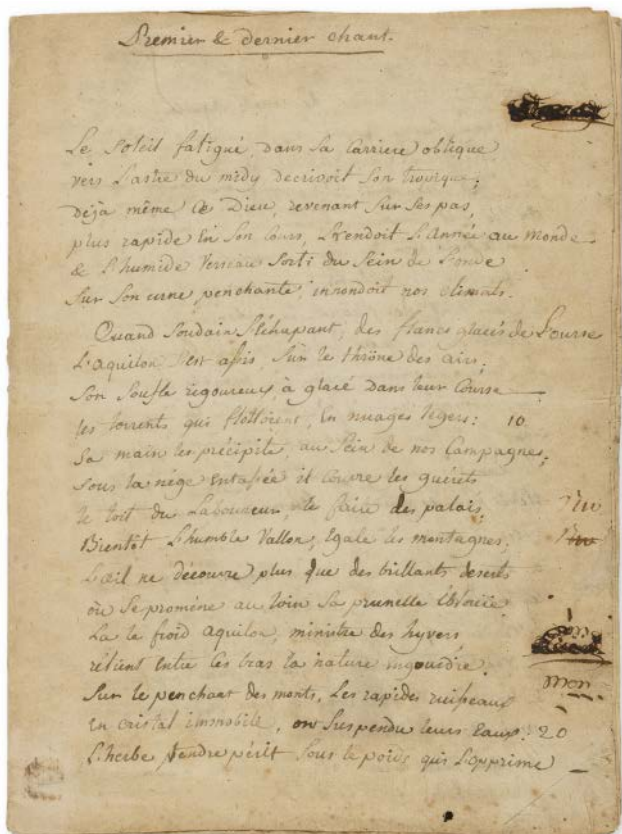 Premier & dernier chant.
Le Soleil fatigué, dans Sa Carriere oblique
vers L'astre du midy decrivoit Son tropique;
déja même Ce Dieu, revenant Sur Ses pas,
plus rapide En Son Cours, Rendoit L'Année au monde
& L'humide Verseau Sorti du Sein de L'onde
Sur Son urne penchante, innondoit nos climats.
Quand Soudain S'échapant, des flancs glacés de L'ourse
L'aquilon S'est assis, Sur le thrône des airs;
Son Soufle rigoureux, à glacé dans leur Course
les torrents qui flottoient, En nuages légers: 10
Sa main les précipite, au Sein de nos Campagnes;
Sous la nége Entassée il Couvre les guérets
le toit du Laboureur, le faite des palais;
Bientôt L'humble Vallon, Egale les montagnes;
L'œil ne découvre plus que des brillants deserts
où Se proméne au loin Sa prunelle Eblouïe
La le froid aquilon, ministre des hyvers
rétient entre Ses bras la nature engourdie
Sur le penchant des monts, Les rapides ruisseaux
mon
En cristal immobile, on Suspendu leurs Eaux: 20
L'herbe tendre périt Sous le poids qui L'opprime